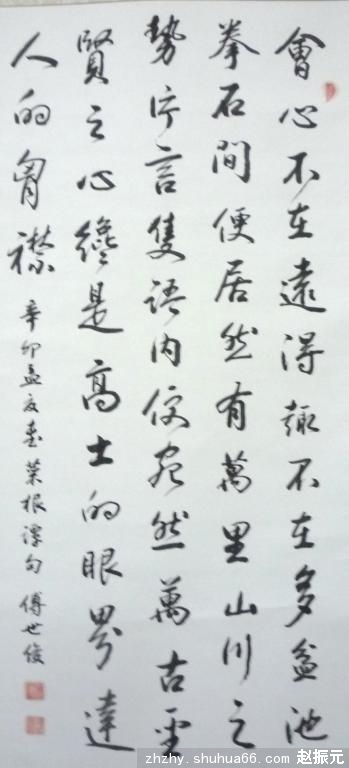 會心不在遠得趣不在多盆池
拳石間便居然有萬里山川之
勢片言隻語内便宛然萬古圣
賢之心纔是高士的眼界達
人的胷襟 辛卯孟夏書菜根譚句 傅世俊
zhzhy.shuhua66.com 赵振元